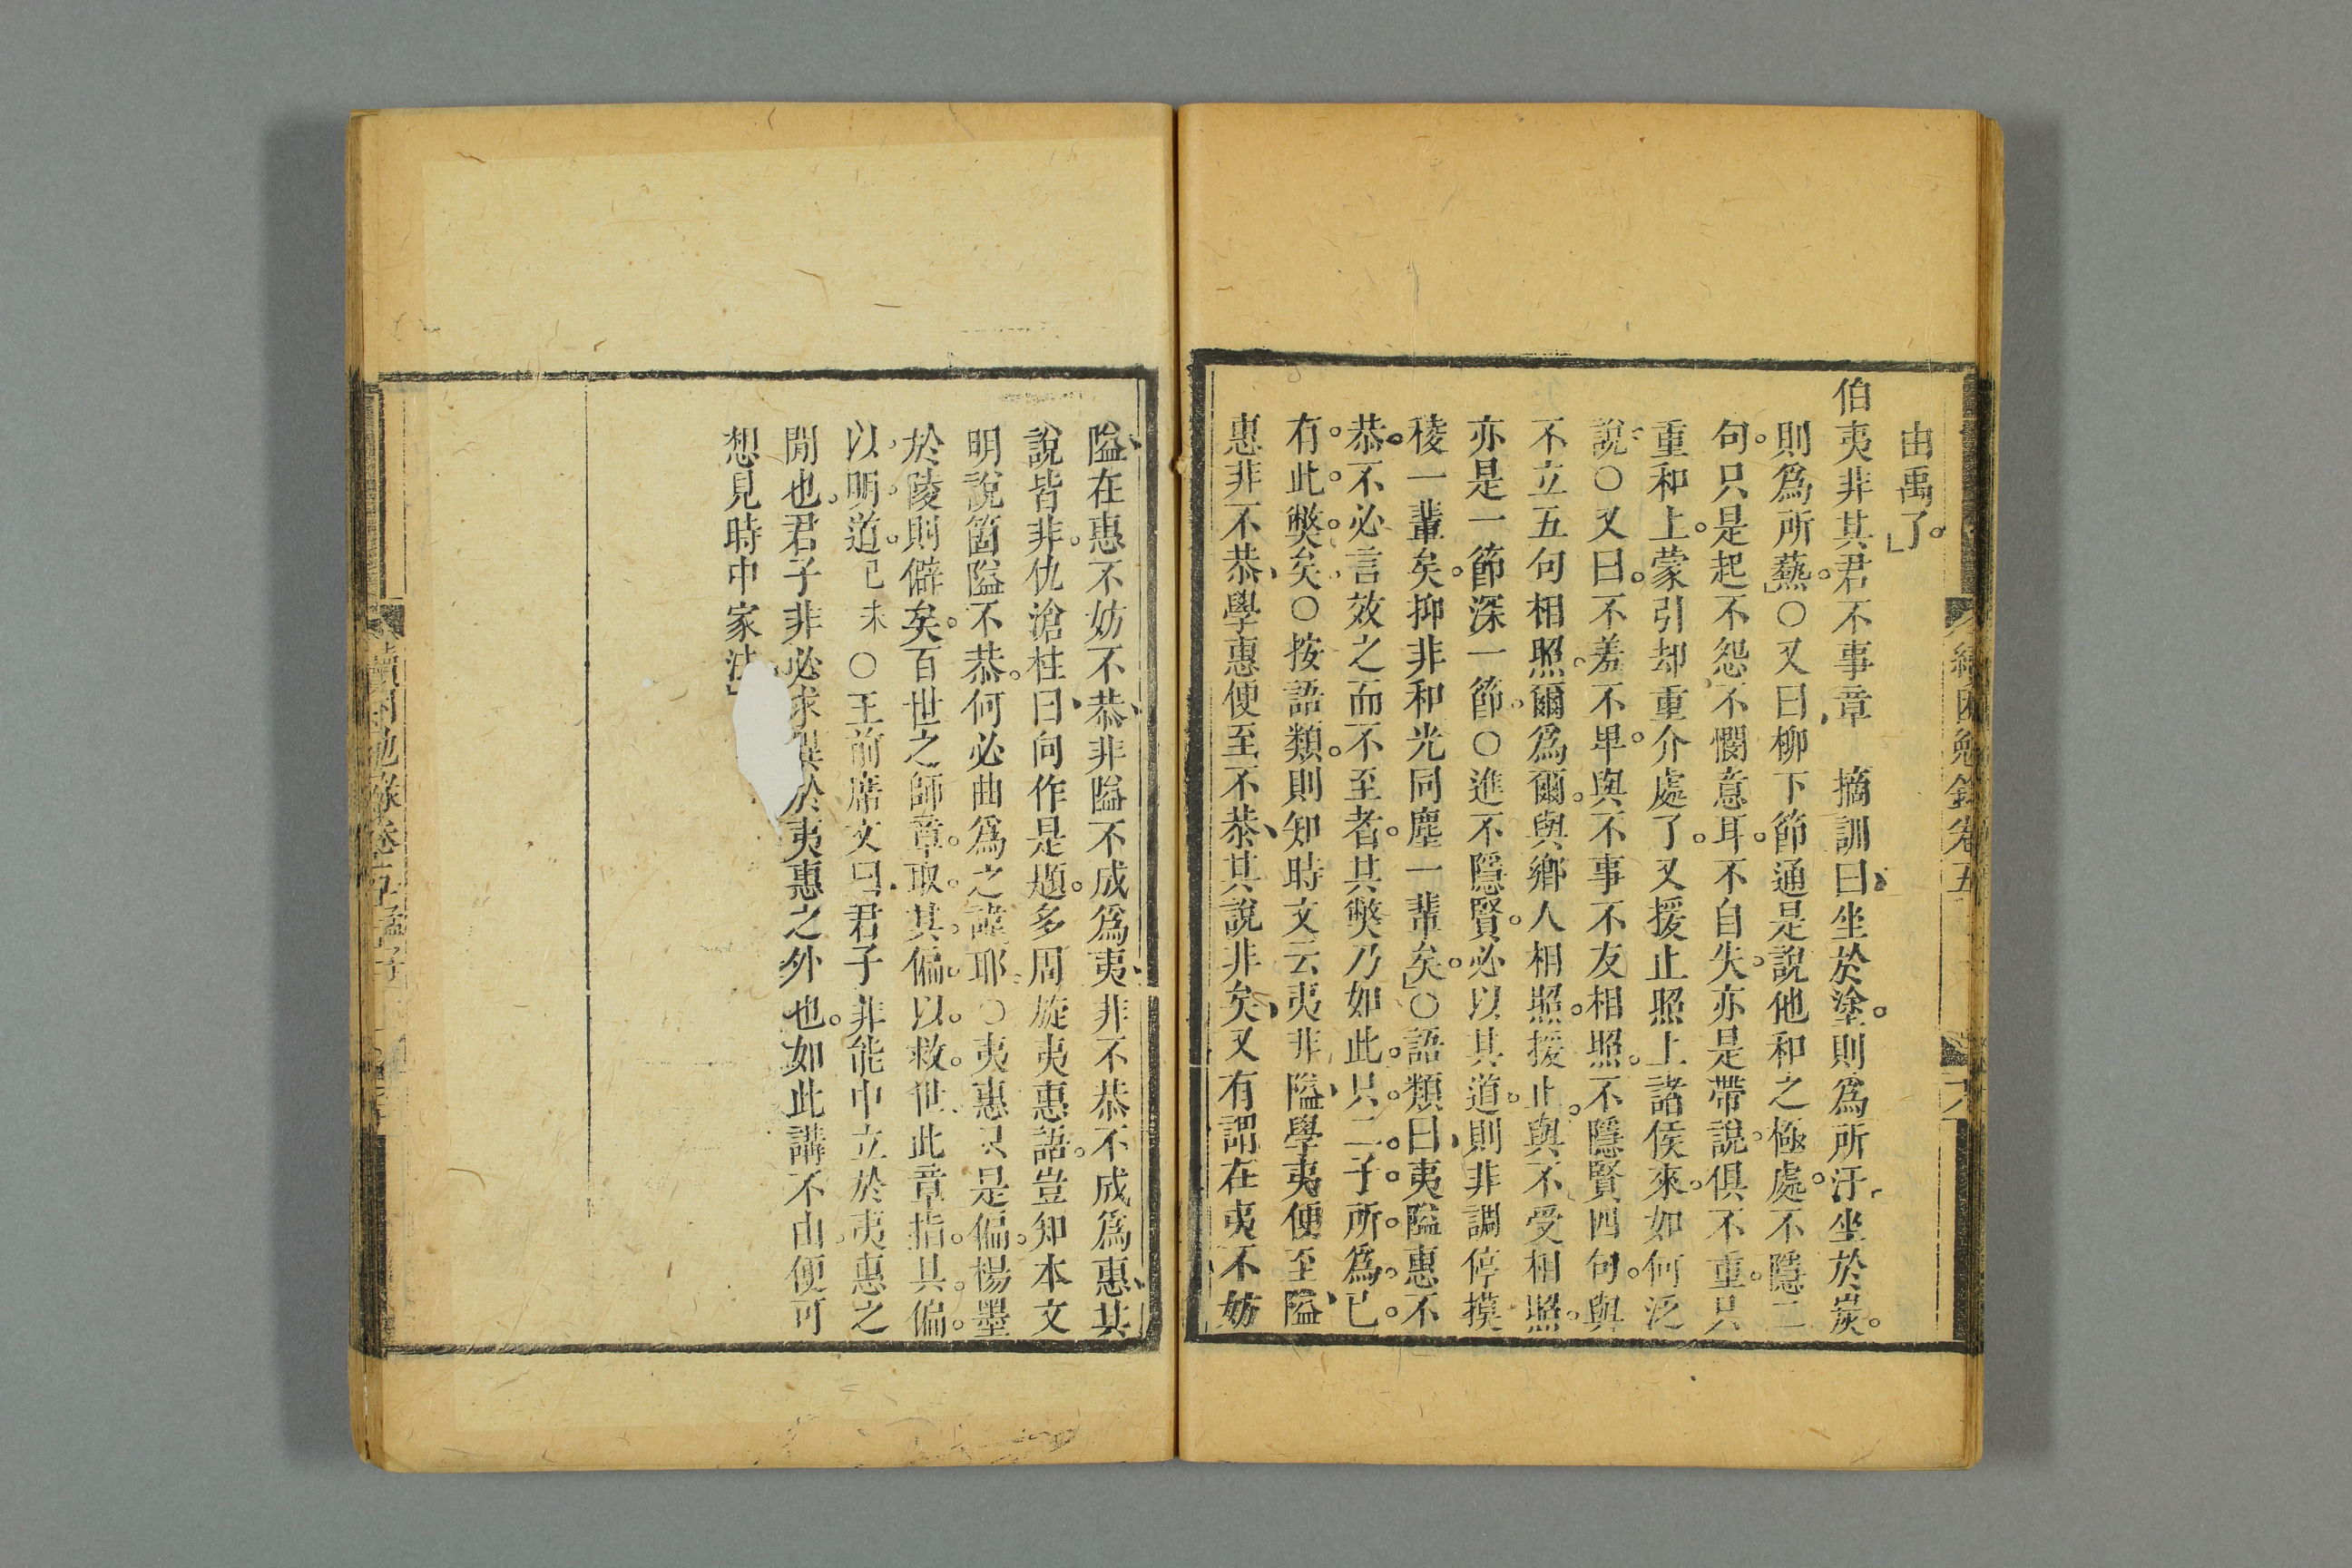 由禹了。」
伯夷非其君不事章　摘訓曰、坐於塗。則爲所汙、坐於炭。
則爲所爇。」○又曰、柳下節通是說他和之極處。不隱二
句。只是起不怨不憫意耳。不自失。亦是帶說。俱不重。只
重和上。蒙引却重介處了。又援止照上諸侯來。如何泛
說○又曰。不羞不畢。與不事不友相照。不隱賢四句。與
不立五句相照。爾爲爾。與鄉人相照。援止。與不受相照。
亦是一節深一節。○進不隱賢。必以其道。則非調停摸
稜一輩矣。抑非和光同塵一輩矣。」○語類曰、夷隘惠不
恭。不必言效之而不至者。其獘乃如此。只。二。子。所。爲。已。
有。此。獘。矣、○按語類。則知時文云夷非隘、學夷便至隘、
惠非不恭、學惠便至不恭、其說非矣、又有謂在夷不妨
隘、在惠不妨不恭、非隘不成爲夷、非不恭不成爲惠、其
說皆非。仇滄柱曰、向作是題。多周旋夷惠語。豈知本文
明說箇隘不恭。何必曲爲之諱耶。○夷惠只是偏。楊墨
於陵則僻矣。百世之師章。取。其。偏。以。救。世此章指。其。偏。
以。明。道。己未○王前席文曰、君子非能中立於夷惠之
閒也。君子非必求異於夷惠之外也。如此講不由便可
想見時中家法」
續困勉錄卷五
續困勉錄卷五孟子